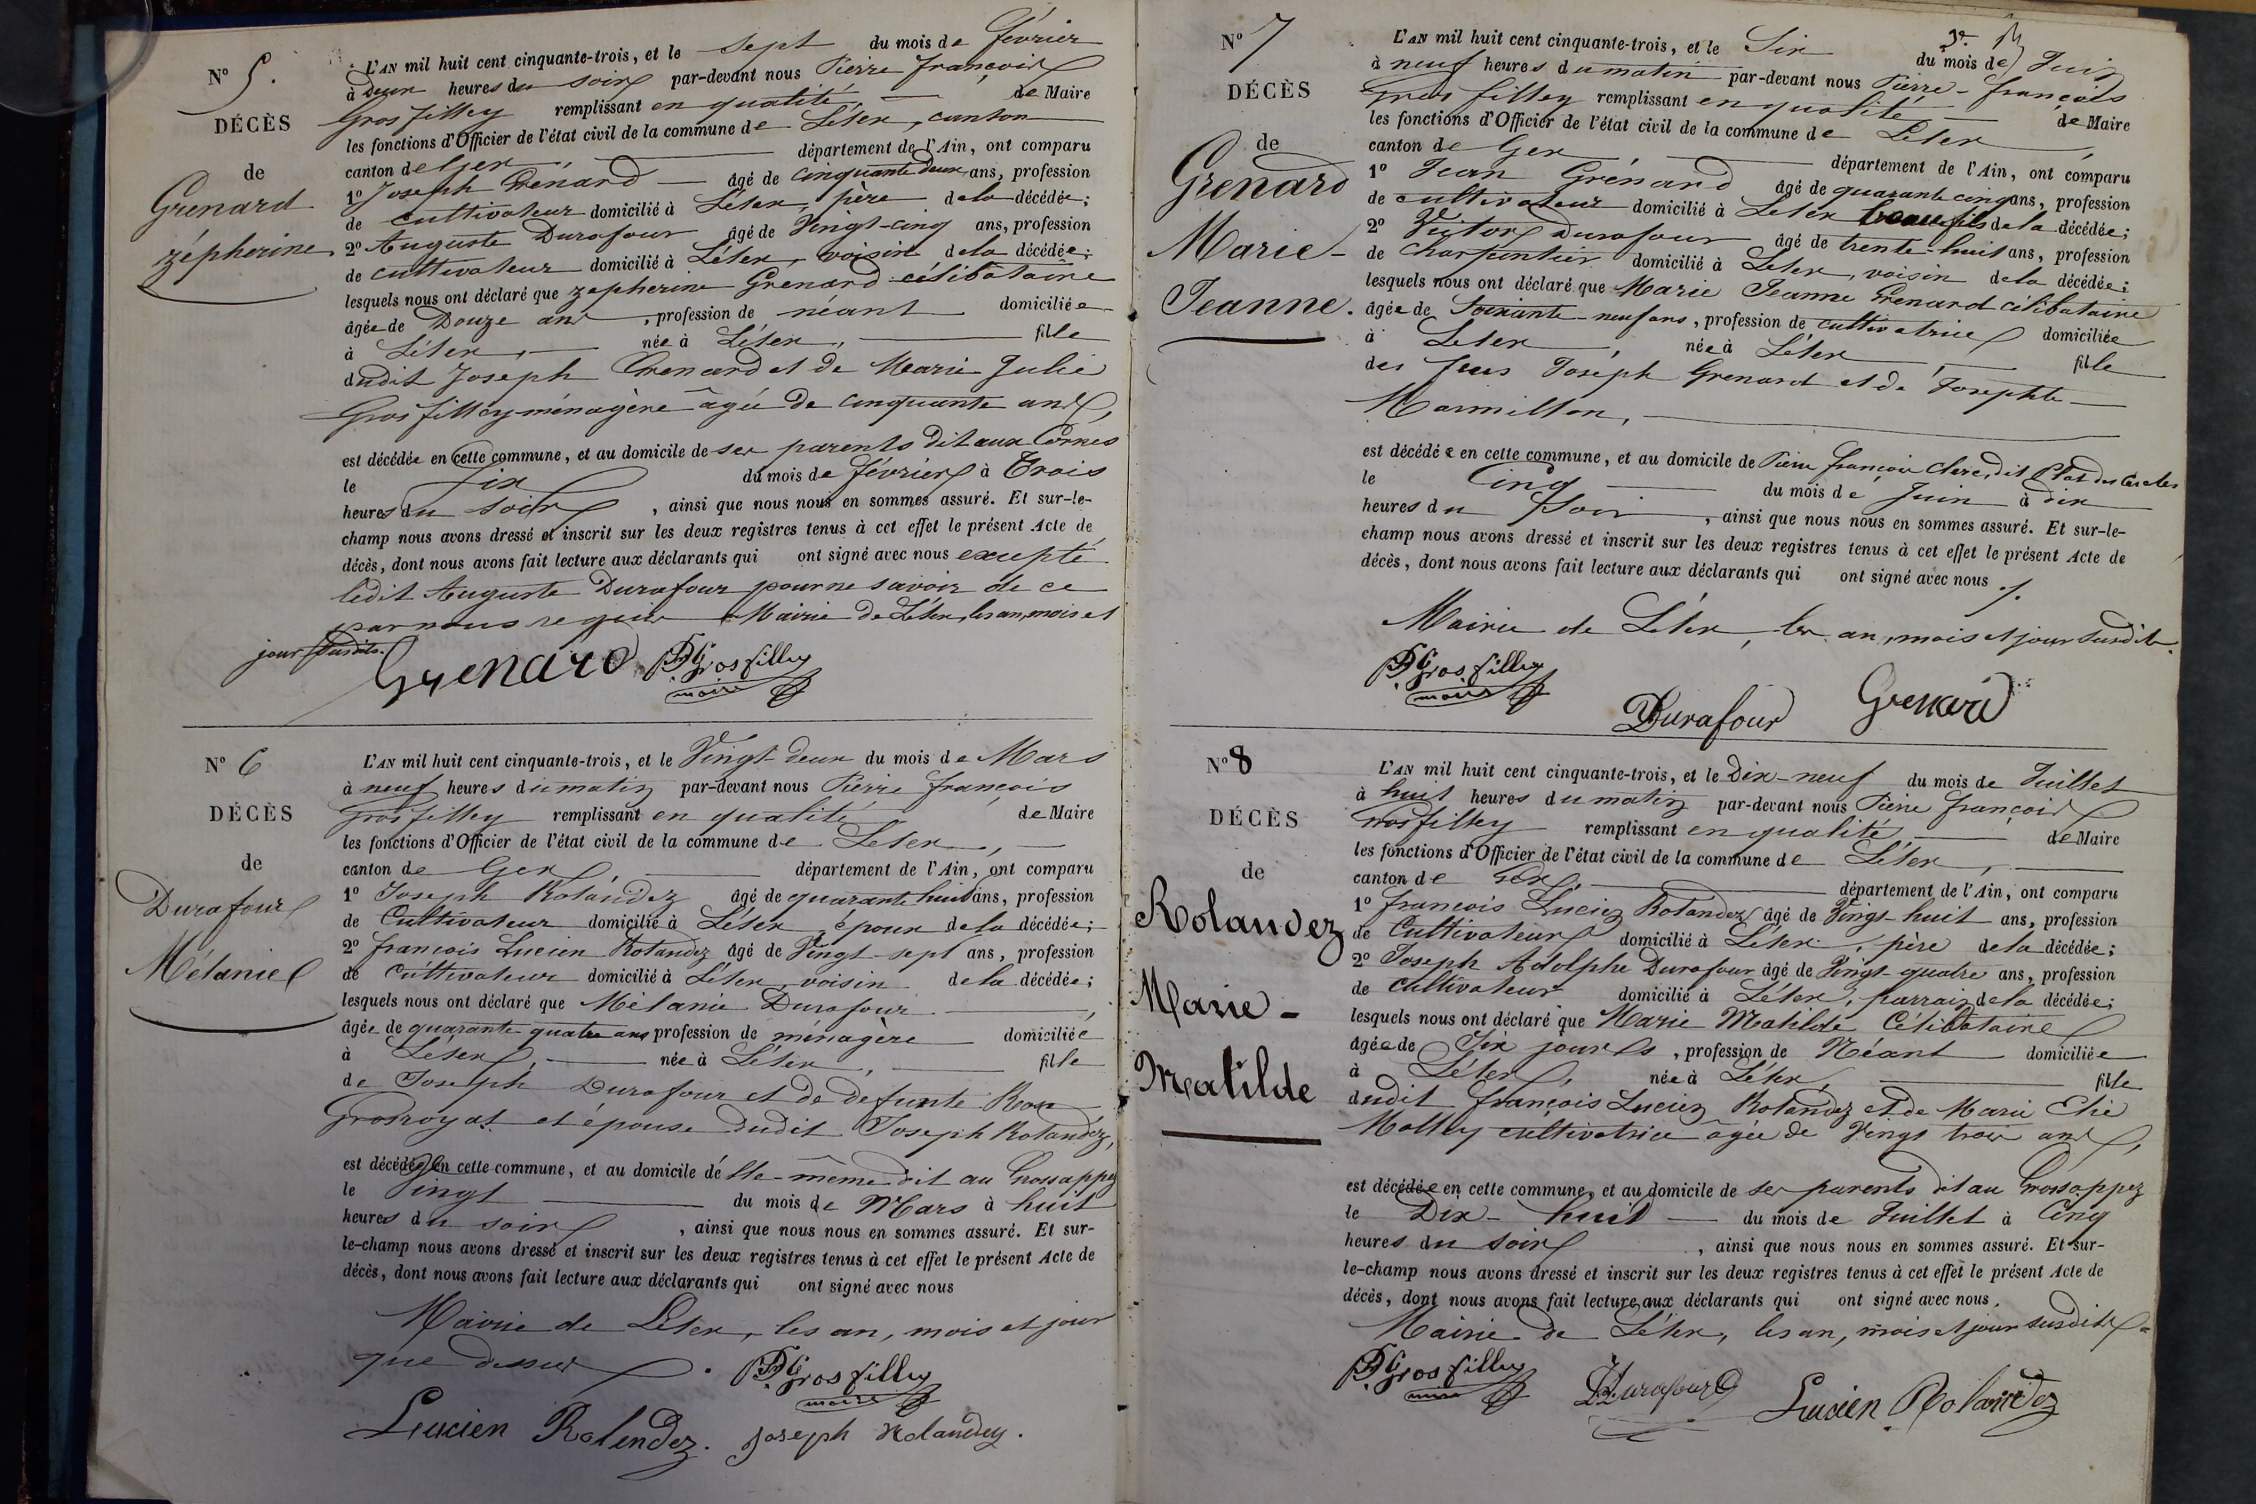 N° 5.
DÉCÈS
de
Grenard
zépherine
L'AN mil huit cent cinquante-trois, et le sept du mois de février
à deux heures du soir par-devant nous Pierre françois
Grosfilley remplissant en qualité de Maire
les fonctions d'Officier de l'état civil de la commune de Lélex, canton
canton de Gex département de l'Ain, ont comparu
1° Joseph Grénard âgé de cinquante deux ans, profession
de cultivateur domicilié à Lélex, père de la décédée;
2° Auguste Durafour âgé de Vingt-cinq ans, profession
de cultivateur domicilié à Lélex, voisin de la décédée;
lesquels nous ont déclaré que zépherine Grenard célibataire
âgée de Douze ans, profession de néant domiciliée
à Lélex, née à Lélex, fille
dudit Joseph Grenard et de Marie Julie
Grosfilley ménagère âgée de cinquante ans,
est décédée en cette commune, et au domicile de ses parents dit aux Cornes
le six du mois de février à Trois
heures du soir, ainsi que nous nous en sommes assuré. Et sur-le-
champ nous avons dressé et inscrit sur les deux registres tenus à cet effet le présent Acte de
décès, dont nous avons fait lecture aux déclarants qui ont signé avec nous excepté
ledit Auguste Durafour pour ne savoir de ce
par nous requis Mairie de Lélex, les an, mois et
jour susdits.
Grenard PF Grosfilley
maire
N° 6
DÉCÈS
de
Durafour
Mélanie
L'AN mil huit cent cinquante-trois, et le Vingt deux du mois de Mars
à neuf heures du matin par-devant nous Pierre françois
Grosfilley remplissant en qualité de Maire
les fonctions d'Officier de l'état civil de la commune de Lélex,
canton de Gex, département de l'Ain, ont comparu
1° Joseph Rolandez âgé de quarante huit ans, profession
de Cultivateur domicilié à Lélex, époux de la décédée;
2° francois Lucien Rolandez âgé de Vingt-sept ans, profession
de Cultivateur domicilié à Lélex, voisin de la décédée;
lesquels nous ont déclaré que Mélanie Durafour,
âgée de quarante quatre ans profession de ménagère domiciliée
à Lélex, née à Lélex, fille
de Joseph Durafour et de defunte Rose
Grosroyat et épouse dudit Joseph Rolandez,
est décédée en cette commune, et au domicile d'elle-même dit au Crossappez
le Vingt du mois de Mars à huit
heures du soir, ainsi que nous nous en sommes assuré. Et sur-
le-champ nous avons dressé et inscrit sur les deux registres tenus à cet effet le présent Acte de
décès, dont nous avons fait lecture aux déclarants qui ont signé avec nous
Mairie de Lélex, les an, mois et jour
que dessus. PF Grosfilley
maire
Lucien Rolendez. joseph Rolandez.
N° 7
DÉCÈS
de
Grenard
Marie-
Jeanne.
L'AN mil huit cent cinquante-trois, et le Six du mois de Juin
à neuf heures du matin par-devant nous Pierre-françois
Gros filley remplissant en qualité de Maire
les fonctions d'Officier de l'état civil de la commune de Lélex,
canton de Gex département de l'Ain, ont comparu
1° Jean Grénard âgé de quarante cinq ans, profession
de cultivateur domicilié à Lélex beau fils de la décédée;
2° Victor Durafour âgé de trente-huit ans, profession
de charpentier domicilié à Lélex, voisin de la décédée;
lesquels nous ont déclaré que Marie Jeanne Grenard célibataire
âgée de Soixante-neuf ans, profession de cultivatrice domiciliée
à Lélex, née à Lélex, fille
des feus Joseph Grenard et de Josephte
Marmillon,
est décédée en cette commune, et au domicile de Pierre françois Clerc, dit
le Cinq du mois de Juin à dix
heures du Soir, ainsi que nous nous en sommes assuré. Et sur-le-
champ nous avons dressé et inscrit sur les deux registres tenus à cet effet le présent Acte de
décès, dont nous avons fait lecture aux déclarants qui ont signé avec nous.
Mairie de Lélex, les an, mois et jour susdits.
PF Grosfilley
maire
Durafour Grenard
N° 8
DÉCÈS
de
Rolandez
Marie-
Matilde
L'AN mil huit cent cinquante-trois, et le Dix-neuf du mois de Juillet
à huit heures du matin par-devant nous Pierre françois
Grosfilley remplissant en qualité de Maire
les fonctions d'Officier de l'état civil de la commune de Lélex,
canton de Gex, département de l'Ain, ont comparu
1° francois Lucien Rolandez âgé de Vingt-huit ans, profession
de Cultivateur domicilié à Lélex, père de la décédée;
2° Joseph Adolphe Durafour âgé de Vingt-quatre ans, profession
de cultivateur domicilié à Lélex, parrain de la décédée;
lesquels nous ont déclaré que Marie Matilde Célibataire
âgée de Six jours, profession de Néant domiciliée
à Lélex, née à Lélex, fille
dudit françois Lucien Rolandez et de Marie
cultivatrice âgée de Vingt trois ans,
est décédée en cette commune, et au domicile de ses parents dit au Crossappez
le Dix-huit du mois de Juillet à Cinq
heures du soir, ainsi que nous nous en sommes assuré. Et sur-
le-champ nous avons dressé et inscrit sur les deux registres tenus à cet effet le présent Acte de
décès, dont nous avons fait lecture aux déclarants qui ont signé avec nous.
Mairie de Lélex, les an, mois et jour susdits.
PF Grosfilley
maire
Durafour Lucien Rolandez